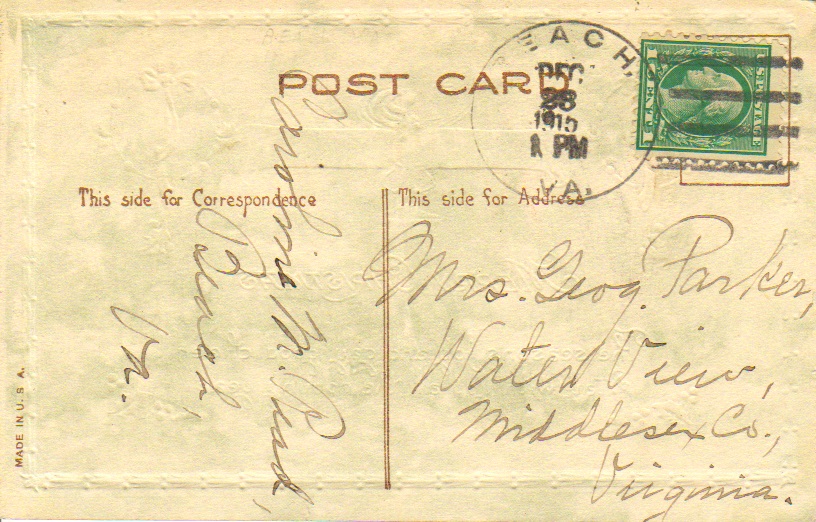 POST CARD
EACH,
DEC
28
1915
1 PM
VA.
1 CENT 1
U.S. POSTAGE
This side for Correspondence
This side for Address
M. Rud,
Beach,
Va.
Mrs. Geog. Parker,
Water View,
Middlesex Co.,
Virginia.
MADE IN U. S. A.